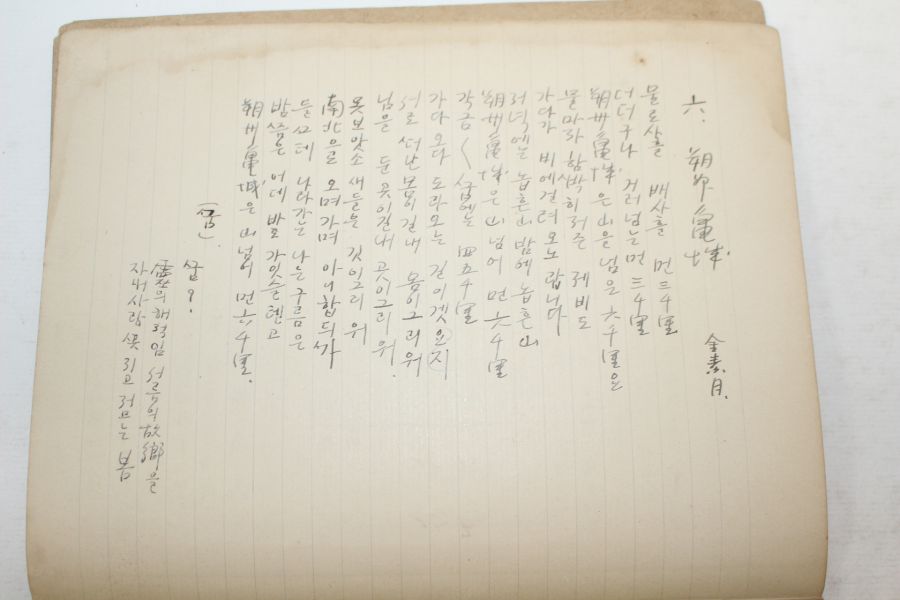 六. 朔州龜城
金素月.
물로사흘 배사흘 먼 三千里
더더구나 거러넘는 먼 三千里
朔州龜城은 山을 넘은 六千里요
물마자 함빡히저즌 제비도
가다가 비에걸려 오노랍니다
저녁에는 놉흔山 밤에 놉흔山
朔州龜城은 山넘어 먼 六千里
각금 〱 꿈에는 四五千里
가다오다 도라오는 길이겟(요)지
서로 떠난몸이길내 몸이그리워
님을 둔 곳이길내 곳이그리워.
못보앗소 새들도 깃이그리워
南北을 오며가며 아니합듸까
들끗테 나라간는 나는구름은
밤쯤은 어데 바로 가잇슬텐고
朔州龜城은 山넘어 먼 六千里.
(꿈).
꿈?
靈의해적임 설음의故鄕을
자내사랑 꼿지고 저므는 봄